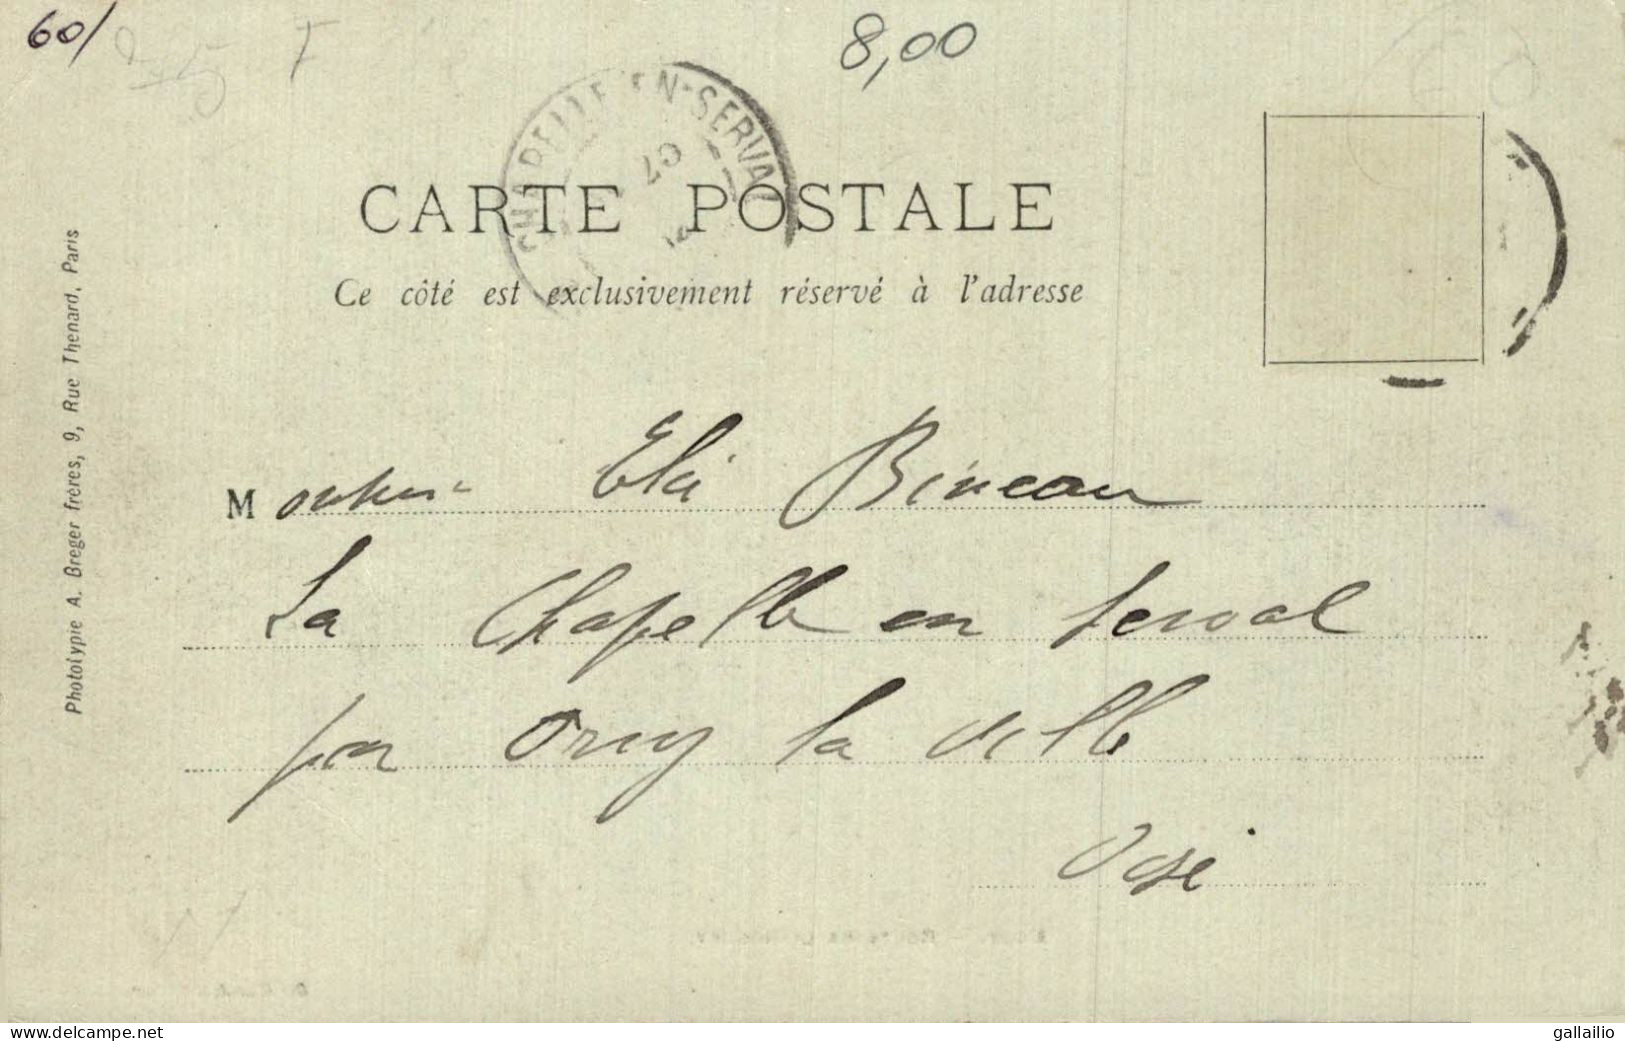 60/
8,00
CHAPELLE-EN-SERVAL
07
CARTE POSTALE
Ce côté est exclusivement réservé à l'adresse
Photolypie A. Breger frères, 9, Rue Thenard, Paris
Monsieur Elie Bineau
La Chapelle en Serval
par Orry la Ville
Oise
www.delcampe.net
gallailio